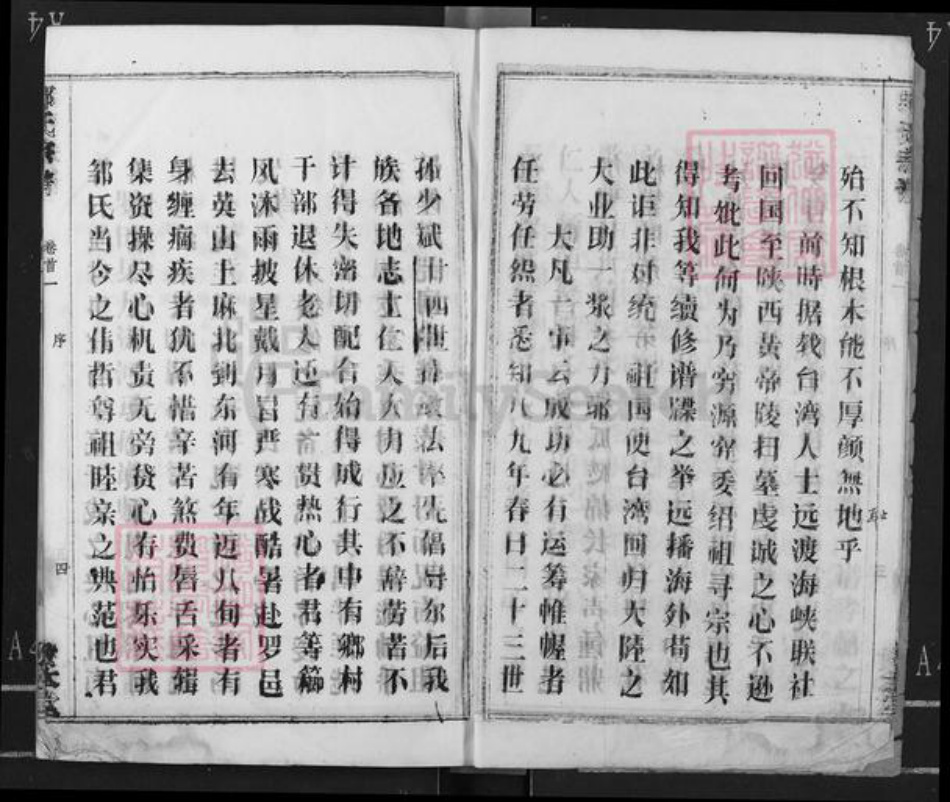 殆不知根本能不厚颜無地乎
前時据载台湾人士远渡海峡联社
回国至陕西黄帝陵扫墓虔诚之心不逊
考妣此何为乃穷源究委绍祖寻宗也其
得知我等续修谱牒之举远播海外苟如
此讵非对统一祖国使台湾回归大陸之
大业助一浆之力耶
大凡一事云成功必有运筹帷幄者
任劳任怨者悉知八九年春日二十三世
孫少斌廿四世
法率先倡导尔后我
族各地志士仁人大力应之不辭劳苦不
计得失密切配合始得成行其中有鄉村
干部退休老人还有
贤热心者君等櫛
风沐雨披星戴月冒严寒战酷暑赴罗邑
去英山上麻北到东河有年迈八旬者有
身缠痼疾者犹不惜辛苦煞费唇舌采辑
集资操尽心机责无旁贷心有怡乐实我
邹氏当今之伟哲尊祖睦亲之典范也君
卷首一
序
四
卷首一
序
三
FamilySearch